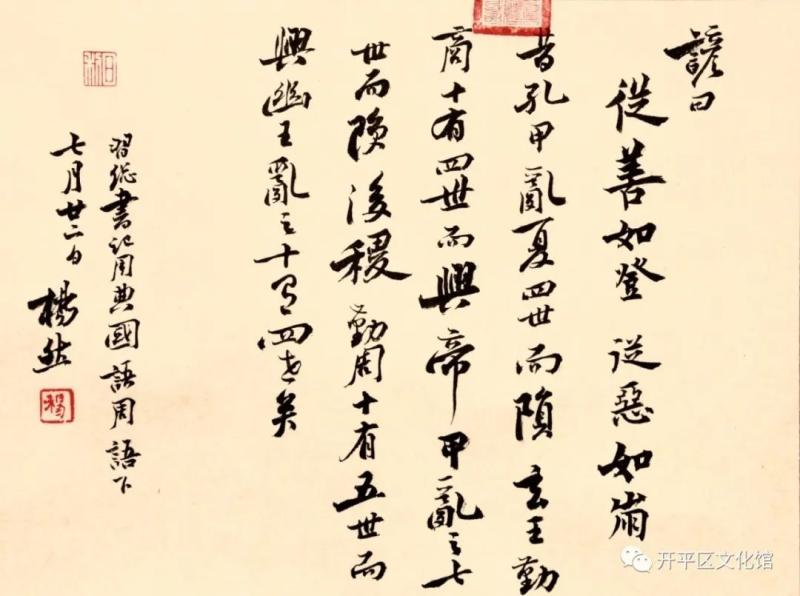 諺曰
從善如登 從惡如崩
昔孔甲亂夏四世而隕玄王勤
商十有四世而興帝甲亂之七
世而隕後稷勤周十有五世而
興幽王亂之十有四世矣
習總書記用典國語周語下
七月廿二日 楊然
楊
开平区文化馆